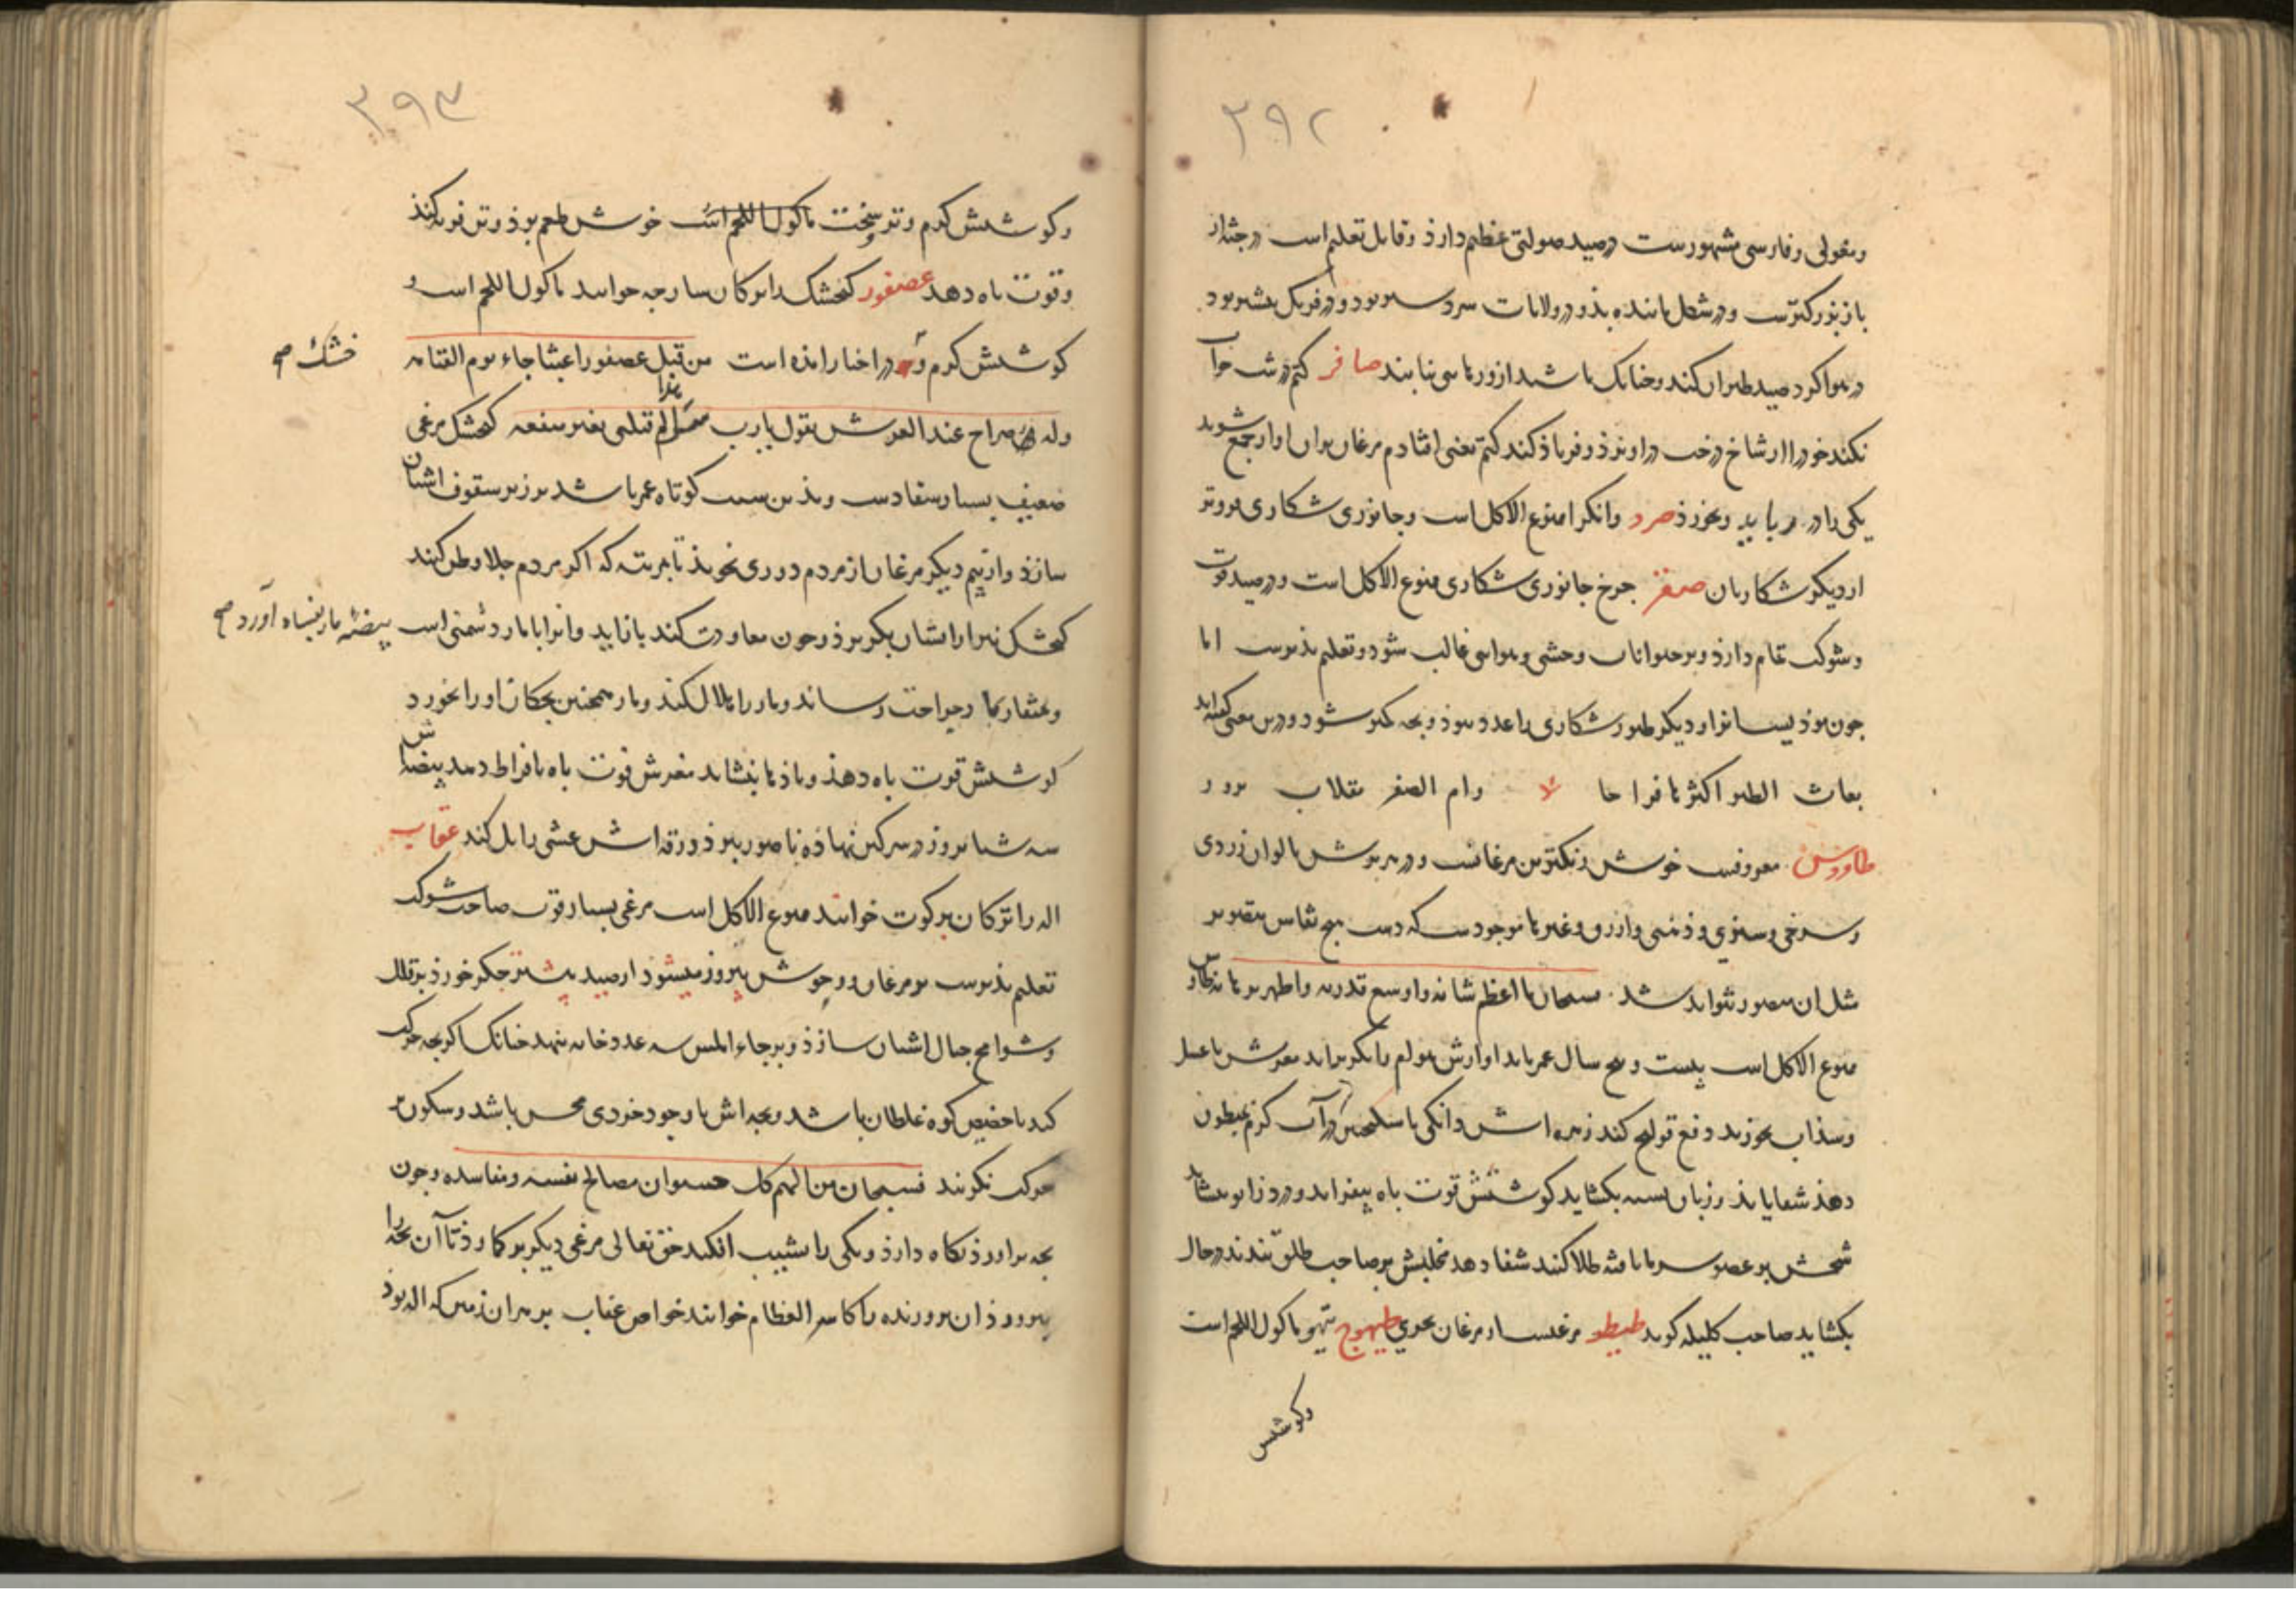 ۳۹۲
ومغولی وفارسی مشهورست درصید صولتی عظیم دارذ وقابل تعلیم است درجثه از
باز بزرکترست ودر شکل ماننده بذو در ولایات سردسیر بود ودر فرنک بیشتر بود
در هوا کرد صید طیران کند وچنانک باشد از و رهایی نیابند صافر کتم در شب خواب
نکند خود را از شاخ درخت دراویزذ وفریاذ کند کتم یعنی افتادم مرغان بران اواز جمع شوند
یکی را در رباید وبخورذ صرد وانکرا ممنوع الاکل است وجانوری شکاری فروتر
از دیکر شکاریان صقر جرخ جانوری شکاری ممنوع الاکل است ودر صید قوت
وشوکت تمام دارذ وبر حیوانات وحشی وهوایی غالب شود وتعلیم پذیرست اما
چون بوذیسانرا و دیکر طیور شکاری را عدد بیوذ وبچه کمتر شود ودرین معنی کفته‌اند
بغاث الطیر اکثرها فراخا وام الصقر مقلات نزور
طاووس معروفست خوش رنکترین مرغانست ودر هر پرش الوان زردی
وسرخی وسبزی وذهبی وازرق وغیرها موجودست که دست هیچ نقاش بتصویر
مثل ان مصور نتواند شد سبحان ما اعظم شانه واوسع قدرته واظهر برهانه طاوس
ممنوع الاکل است بیست و پنج سال عمر یابد اوازش هوام را بکریزاند مغزش با عسل
وسذاب بخورند دفع قولنج کند زهره‌اش دانکی با سکنجبین در آب کرم بمبطون
دهند شفا یابذ وزبان بسته بکشاید کوشتش قوت باه بیفزاید ودرد زانو بنشاند
شحمش بر عضو سرمایافته طلا کنند شفا دهد مخلبش بر صاحب طلق بندند در حال
بکشاید صاحب کلیله کوید طیطو مرغیست از مرغان بحری طیهوج تیهو ماکول اللحم است
وکوشتش
۳۹۳
وکوشتش کرم وتر سخت ماکول اللحم است خوش طعم بوذ وتن فربه کند
وقوت باه دهد عصفور کنجشک را ترکان سارجه خوانند ماکول اللحم است و
کوشتش کرم و در اخبار امذه است من قتل عصفورا عبثا جاء یوم القیامه
خشک صح
وله صراح عند العرش یقول یا رب سل هذا لم قتلنی بغیر منفعه کنجشک مرغی
ضعیف بسیار سفادست وبذین سبب کوتاه عمر باشد بر زیر سقوف اشیان
سازذ واز بیم دیکر مرغان از مردم دوری نجوید تا بمرتبه که اکر مردم جلا وطن کنند
کنجشک نیز از ایشان بکریزذ وچون معاودت کنند باز اید وانرا با مار دشمنی است
بیضهٔ مار بفساد آورد صح
وبمنقار بمار جراحت رساند ومار را هلاک کند ومار همچنین بچکان او را بخورد
کوشتش قوت باه دهذ وباذها بنشاند مغزش قوت باه بافراط دهد بیضه‌اش
سه شبانروز در سرکین نهاذه ناصور ببرذ وزرقه‌اش عشی زایل کند عقاب
اله را ترکان برکوت خوانند ممنوع الاکل است مرغی بسیار قوت صاحب شوکت
تعلیم پذیرست بر مرغان ووحوش پیروز میشوذ از صید بیشتر جکر خورذ بر قلل
وشوامخ جبال اشیان سازذ وبر جاء املس سه عدد خایه بنهد چنانک اکر بچه حرکت
کند تا حضیض کوه غلطان باشد وبچه‌اش با وجود خردی محس باشد وسکون بر
حرکت نکزیند فسبحان من الهم کل حیوان مصالح نفسه ومفاسده وچون
بچه براورذ نکاه دارذ ویکی را بشیب افکند حق تعالی مرغی دیکر بر کمارذ تا آن بچه را
پروروذ ان پرورنده را کاسر العظام خوانند خواص عقاب بر هر ان زمین که اله بوذ